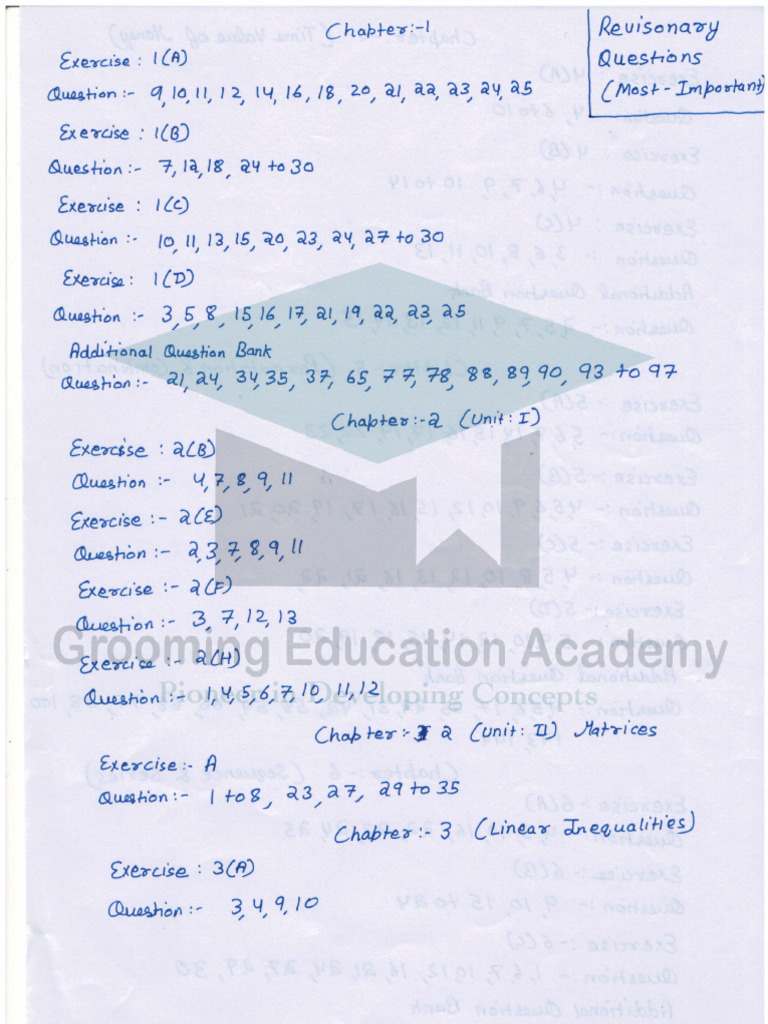 Chapter:-1
Revisonary
Questions
(Most-Important)
Exercise : 1(A)
Question :- 9, 10, 11, 12, 14, 16, 18, 20, 21, 22, 23, 24, 25
Exercise : 1(B)
Question :- 7, 12, 18, 24 to 30
Exercise : 1(C)
Question :- 10, 11, 13, 15, 20, 23, 24, 27 to 30
Exercise : 1(D)
Question :- 3, 5, 8, 15, 16, 17, 21, 19, 22, 23, 25
Additional Question Bank
Question :- 21, 24, 34, 35, 37, 65, 77, 78, 88, 89, 90, 93 to 97
Chapter :- 2 (Unit : I)
Exercise : 2(B)
Question :- 4, 7, 8, 9, 11
Exercise :- 2(E)
Question :- 2, 3, 7, 8, 9, 11
Exercise :- 2(F)
Question :- 3, 7, 12, 13
Grooming Education Academy
Exercise :- 2(H)
Question :- 1, 4, 5, 6, 7, 10, 11, 12
Pioneer in Developing Concepts
Chapter :- 2 (Unit : II) Matrices
Exercise :- A
Question :- 1 to 8, 23, 27, 29 to 35
Chapter :- 3 (Linear Inequalities)
Exercise : 3(A)
Question :- 3, 4, 9, 10